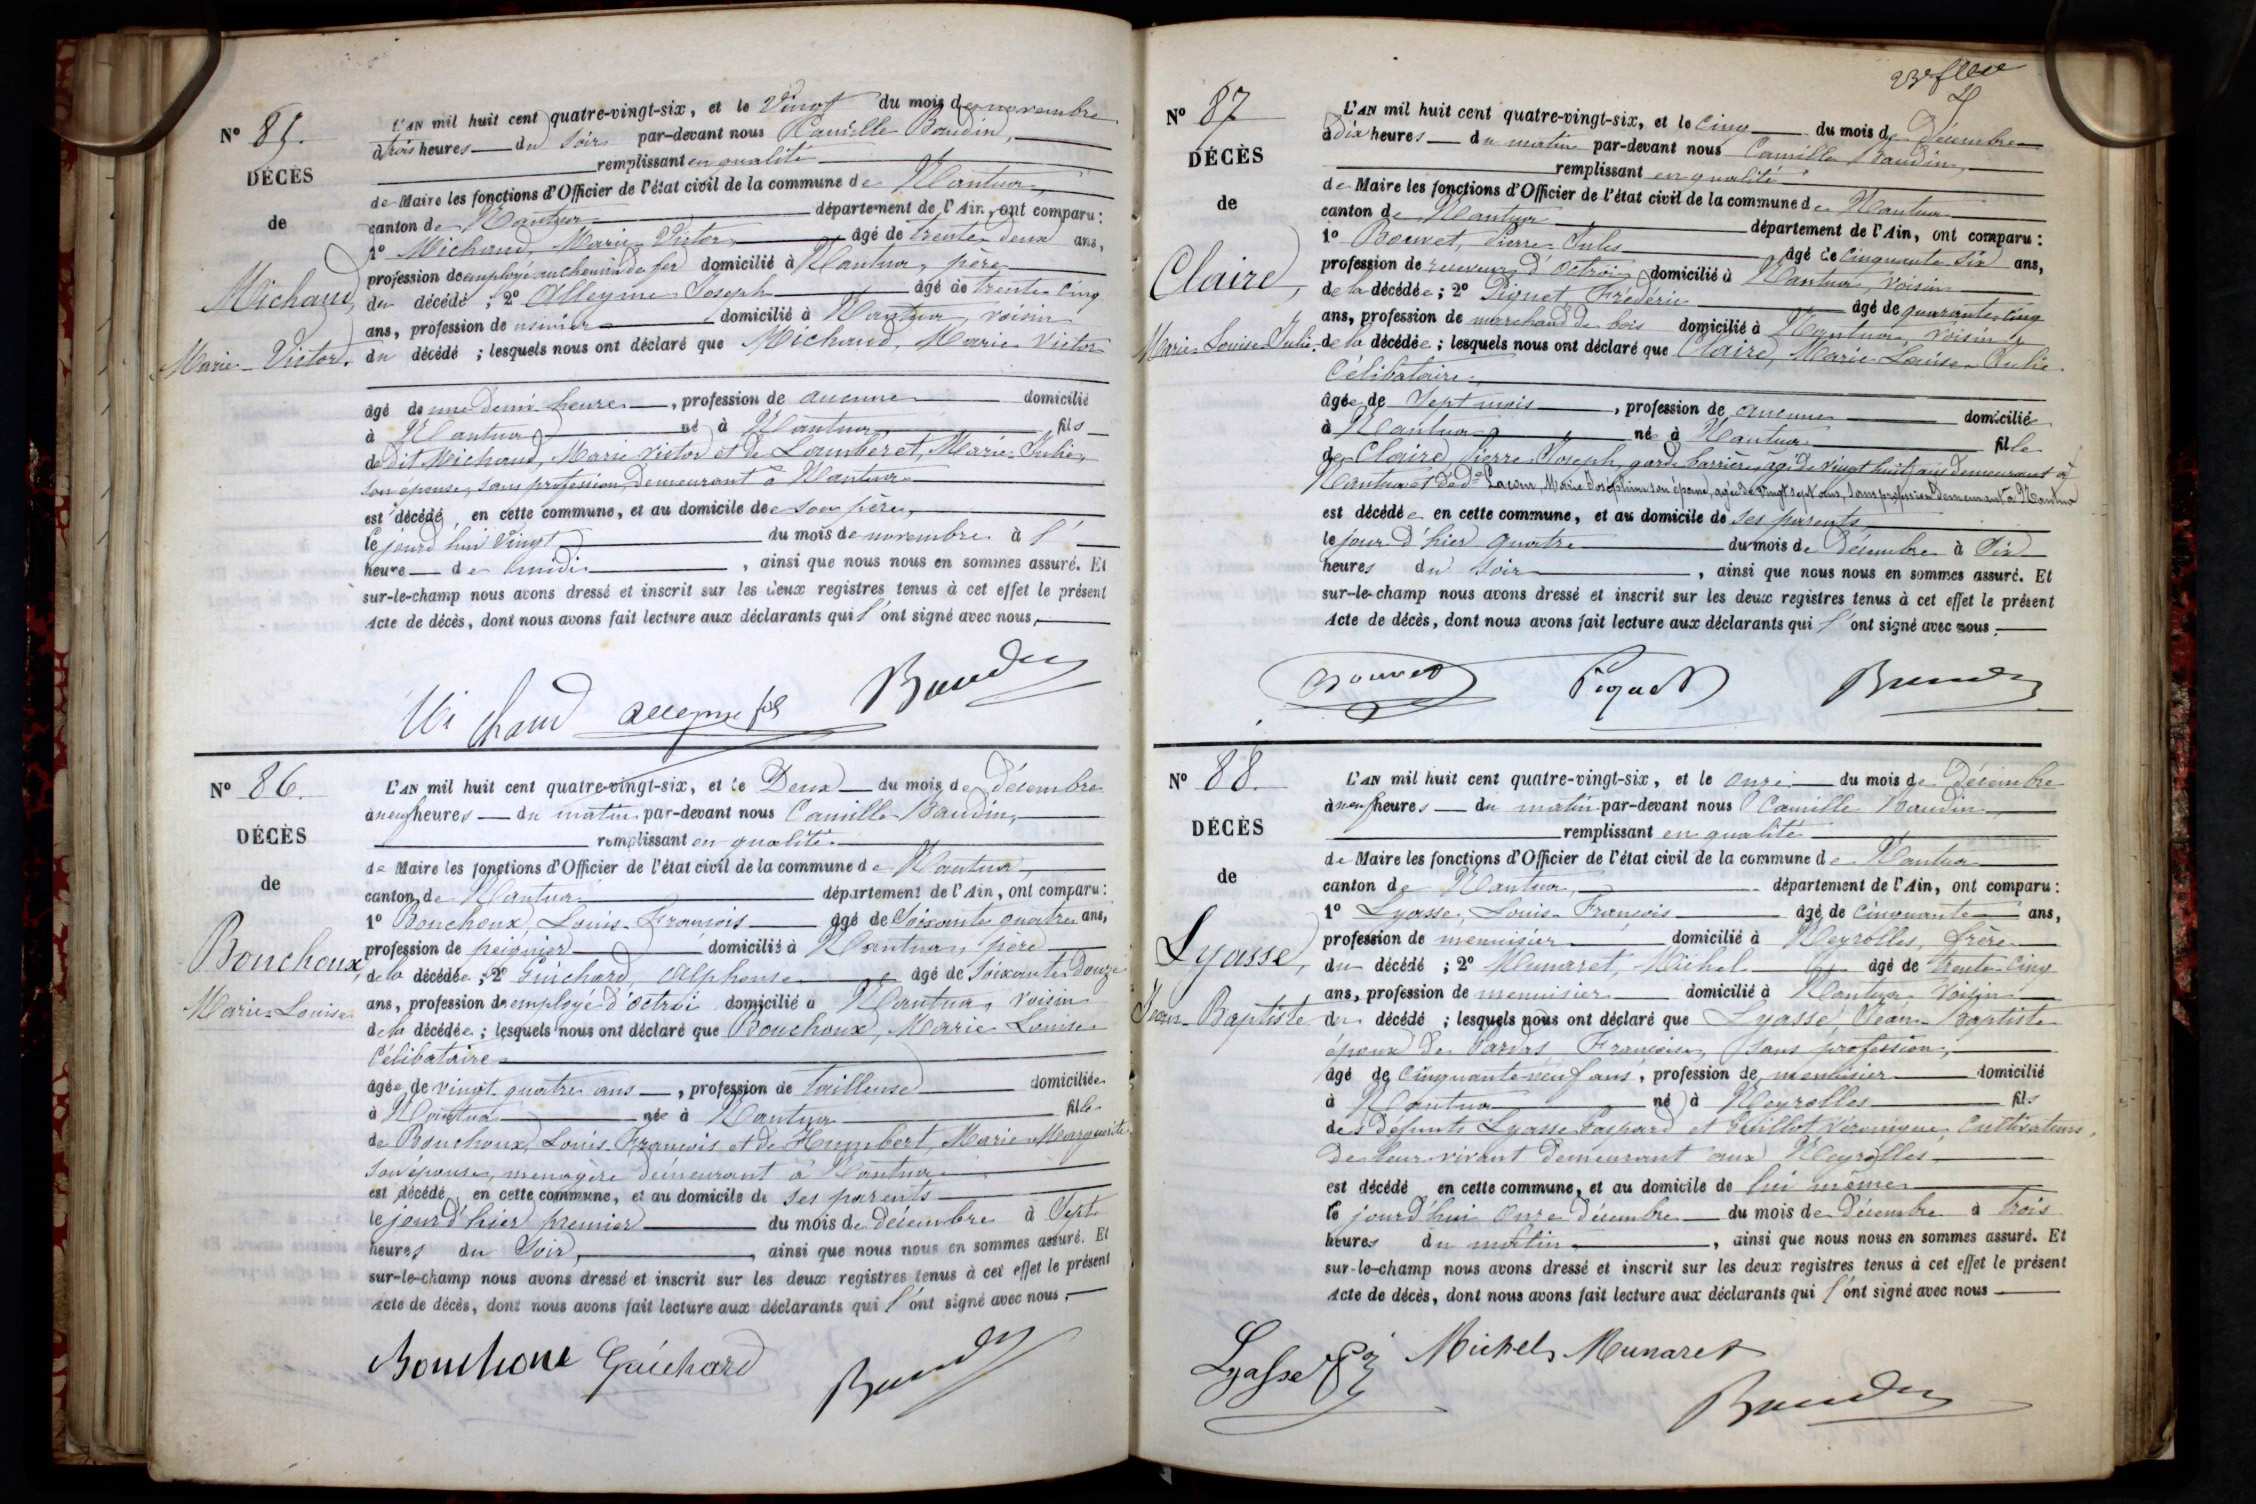 N° 85.
DÉCÈS
de
Michaud,
Marie-Victor.
L'AN mil huit cent quatre-vingt-six, et le Vingt du mois de novembre
à trois heures du soir par-devant nous Camille Baudin,
remplissant en qualité
de Maire les fonctions d'Officier de l'état civil de la commune de Nantua,
canton de Nantua département de l'Ain, ont comparu :
1° Michaud, Marie Victor âgé de trente deux ans,
profession de employé au chemin de fer domicilié à Nantua, père
du décédé ; 2° Alleyme Joseph âgé de trente cinq
ans, profession de domicilié à Nantua, voisin
du décédé ; lesquels nous ont déclaré que Michaud, Marie Victor
âgé de une demi heure, profession de aucune domicilié
à Nantua né à Nantua fils
de dit Michaud, Marie Victor et de Lamberet, Marie Julie,
son épouse, sans profession, demeurant à Nantua
est décédé en cette commune, et au domicile de son père,
le jourd'hui vingt du mois de novembre à l'
heure de midi, ainsi que nous nous en sommes assuré. Et
sur-le-champ nous avons dressé et inscrit sur les deux registres tenus à cet effet le présent
Acte de décès, dont nous avons fait lecture aux déclarants qui l'ont signé avec nous.
Michaud Alleyme fils Baudin
N° 86.
DÉCÈS
de
Bouchoux,
Marie-Louise
L'AN mil huit cent quatre-vingt-six, et le Deux du mois de décembre
à neuf heures du matin par-devant nous Camille Baudin,
remplissant en qualité
de Maire les fonctions d'Officier de l'état civil de la commune de Nantua,
canton de Nantua département de l'Ain, ont comparu :
1° Bouchoux, Louis François âgé de soixante quatre ans,
profession de peignier domicilié à Nantua, père
de la décédée ; 2° Guichard, Alphonse âgé de soixante douze
ans, profession de employé d'octroi domicilié à Nantua, voisin
de la décédée ; lesquels nous ont déclaré que Bouchoux, Marie Louise
Célibataire
âgée de vingt quatre ans, profession de tailleuse domiciliée
à Nantua née à Nantua fille
de Bouchoux, Louis François et de Humbert, Marie Marguerite
son épouse, ménagère demeurant à Nantua
est décédé en cette commune, et au domicile de ses parents
le jour d'hier premier du mois de décembre à Sept
heures du Soir, ainsi que nous nous en sommes assuré. Et
sur-le-champ nous avons dressé et inscrit sur les deux registres tenus à cet effet le présent
Acte de décès, dont nous avons fait lecture aux déclarants qui l'ont signé avec nous.
Bouchoux Guichard Baudin
N° 87
DÉCÈS
de
Claire,
Marie-Louise-Julie.
L'AN mil huit cent quatre-vingt-six, et le cinq du mois de Décembre
à dix heures du matin par-devant nous Camille Baudin,
remplissant en qualité
de Maire les fonctions d'Officier de l'état civil de la commune de Nantua
canton de Nantua département de l'Ain, ont comparu :
1° Bouvet, Pierre Jules âgé de cinquante six ans,
profession de receveur d'octroi, domicilié à Nantua, voisin
de la décédée ; 2° Piquet, Frédéric âgé de quarante cinq
ans, profession de marchand de bois domicilié à Nantua, voisin
de la décédée ; lesquels nous ont déclaré que Claire, Marie Louise Julie
Célibataire
âgée de Sept mois, profession de aucune domiciliée
à Nantua née à Nantua fille
de Claire Pierre Joseph, garde barrière, âgé de vingt huit ans demeurant à
Nantua et de de Lacour, Marie Joséphine son épouse, âgée de vingt sept ans, sans profession demeurant à Nantua
est décédée en cette commune, et au domicile de ses parents
le jour d'hier quatre du mois de Décembre à Six
heures du soir, ainsi que nous nous en sommes assuré. Et
sur-le-champ nous avons dressé et inscrit sur les deux registres tenus à cet effet le présent
Acte de décès, dont nous avons fait lecture aux déclarants qui l'ont signé avec nous.
Bouvet Piquet Baudin
N° 88.
DÉCÈS
de
Lyasse,
Jean-Baptiste
L'AN mil huit cent quatre-vingt-six, et le onze du mois de Décembre
à neuf heures du matin par-devant nous Camille Baudin,
remplissant en qualité
de Maire les fonctions d'Officier de l'état civil de la commune de Nantua
canton de Nantua, département de l'Ain, ont comparu :
1° Lyasse, Louis François âgé de cinquante ans,
profession de menuisier domicilié à Neyrolles, frère
du décédé ; 2° Munaret, Michel âgé de trente cinq
ans, profession de menuisier domicilié à Nantua, voisin
du décédé ; lesquels nous ont déclaré que Lyasse Jean-Baptiste
époux de Françoise, sans profession,
âgé de cinquante neuf ans, profession de menuisier domicilié
à Nantua né à Neyrolles fils
des défunts Lyasse Gaspard et Guillot Véronique, Cultivateurs,
de leur vivant demeurant aux Neyrolles
est décédé en cette commune, et au domicile de lui même
le jourd'hui Onze décembre du mois de Décembre à trois
heures du matin, ainsi que nous nous en sommes assuré. Et
sur-le-champ nous avons dressé et inscrit sur les deux registres tenus à cet effet le présent
Acte de décès, dont nous avons fait lecture aux déclarants qui l'ont signé avec nous
Lyasse Michel Munaret
Baudin